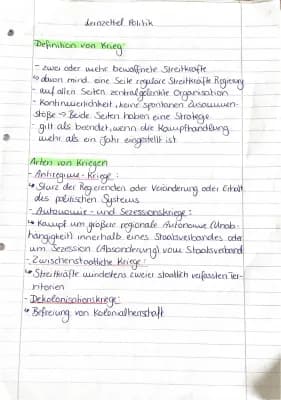 Lernzettel Politik
Definition von Krieg:
- zwei oder mehr bewaffnete Streitkräfte
↳ davon mind. eine Seite reguläre Streitkräfte Regierung
- auf allen Seiten zentralgelenkte Organisation
- Kontinuierlichkeit, keine spontanen Zusammen-
stöße → Beide Seiten haben eine Strategie
gilt als beendet, wenn die Kampfhandlung
mehr als ein Jahr eingestellt ist
Arten von Kriegen
- Antiregime-Kriege:
↳ Sturz der Regierenden oder Veränderung oder Erhalt
des politischen Systems
- Autonomie- und Sezessionskriege:
↳ Kampf um größere regionale Autonomie (Unab-
hängigkeit) innerhalb eines Staatsverbandes oder
um Sezession (Absonderung) vom Staatsverband
- Zwischenstaatliche Kriege:
↳ Streitkräfte mindestens zweier staatlich verfassten Ter-
ritorien
- Dekolonisationskriege:
↳ Befreiung von Kolonialherrschaft